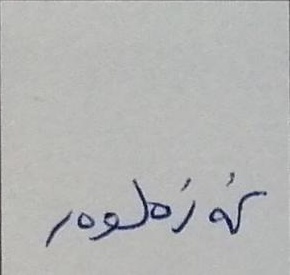 خەزەلوەر